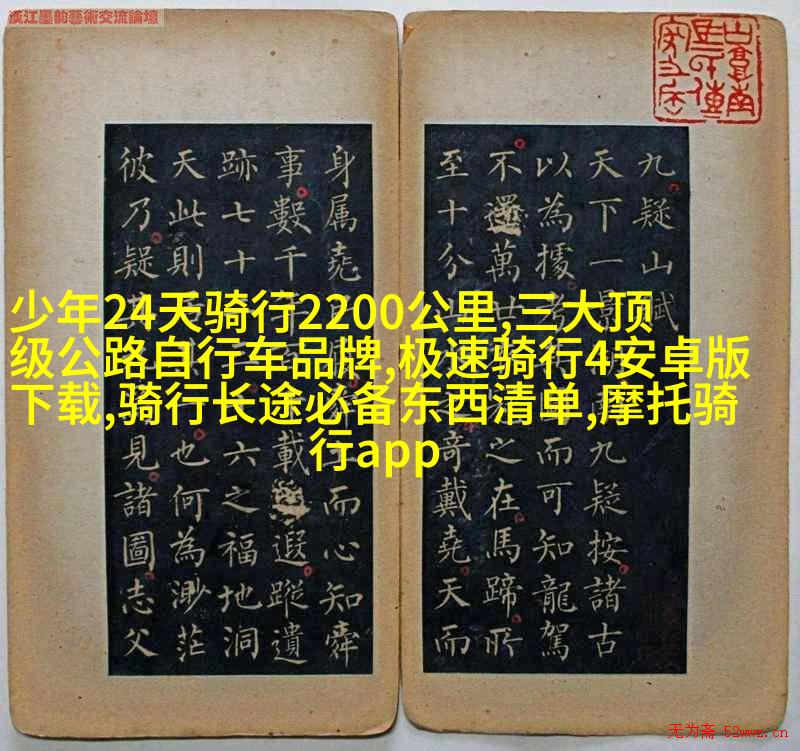 漢江墨韵藝術交流論壇
少年24天骑行2200公里,三大顶
级公路自行车品牌,极速骑行4安卓版
下载,骑行长途必备东西清单,摩托骑
行app
九疑山賦
天下一九疑按諸古
以為據而可知龍駕
不還萬之在馬蹄所
至十分奇戴堯天而
身属堯而心知舜
事數千載遐蹤遺
跡七十六之福地洞
天此則也何為渺茫
彼乃疑見諸圖志父
无为斋 52wwz.cn